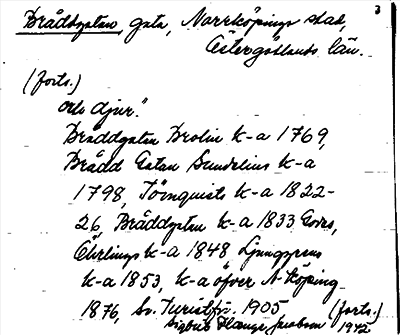 3
Bråddgatan, gata, Norrköpings stad,
Östergötlands län.
(forts.)
och djur."
Bråddgatan Brolin k-a 1769,
Brådd Gatan Sundelius k-a
1798, Törnquists k-a 1822-
26, Bråddgatan k-a 1833
Öhrlings k-a 1848 Ljunggrens
k-a 1853, k-a öfver N-köping
1876, Sv. Turistför. 1905 (forts.)
1942